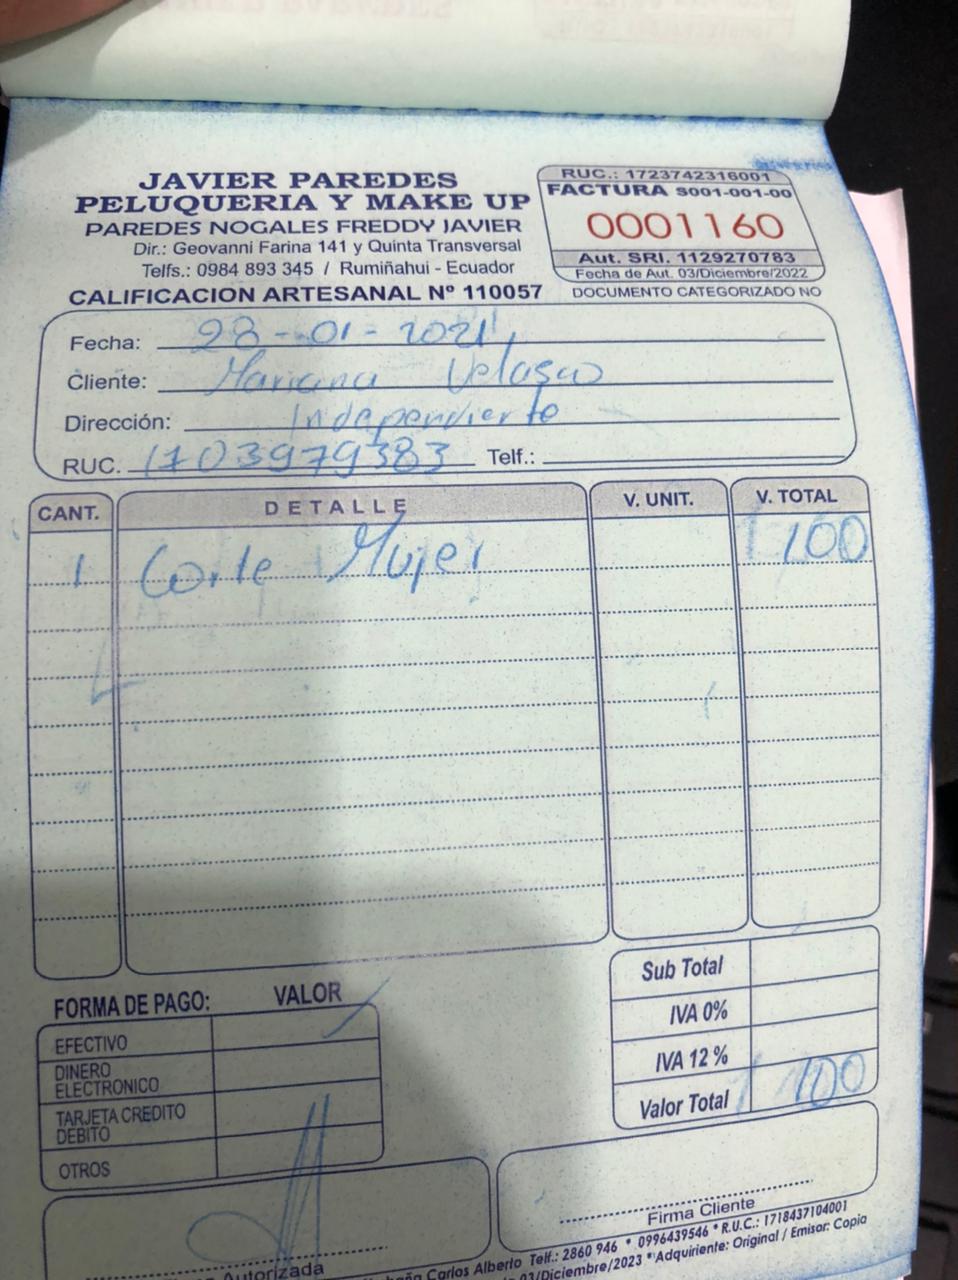 JAVIER PAREDES
PELUQUERIA Y MAKE UP
PAREDES NOGALES FREDDY JAVIER
Dir.: Geovanni Farina 141 y Quinta Transversal
Telfs.: 0984 893 345 / Rumiñahui - Ecuador
CALIFICACION ARTESANAL Nº 110057
RUC.: 1723742316001
FACTURA S001-001-00
0001160
Aut. SRI. 1129270783
Fecha de Aut. 03/Diciembre/2022
DOCUMENTO CATEGORIZADO NO
Fecha: 28-01-2021
Cliente: Mariana Velasco
Dirección: Independiente
RUC. 1703979383 Telf.:
CANT. DETALLE V. UNIT. V. TOTAL
1 Corte Mujer 100
Sub Total
IVA 0%
IVA 12 %
Valor Total 100
FORMA DE PAGO: VALOR
EFECTIVO
DINERO ELECTRONICO
TARJETA CREDITO DEBITO
OTROS
Autorizada
Firma Cliente
Carlos Alberto Telf.: 2860 946 * 0996439546 * R.U.C.: 1718437104001
03/Diciembre/2023 * Adquiriente: Original / Emisor: Copia